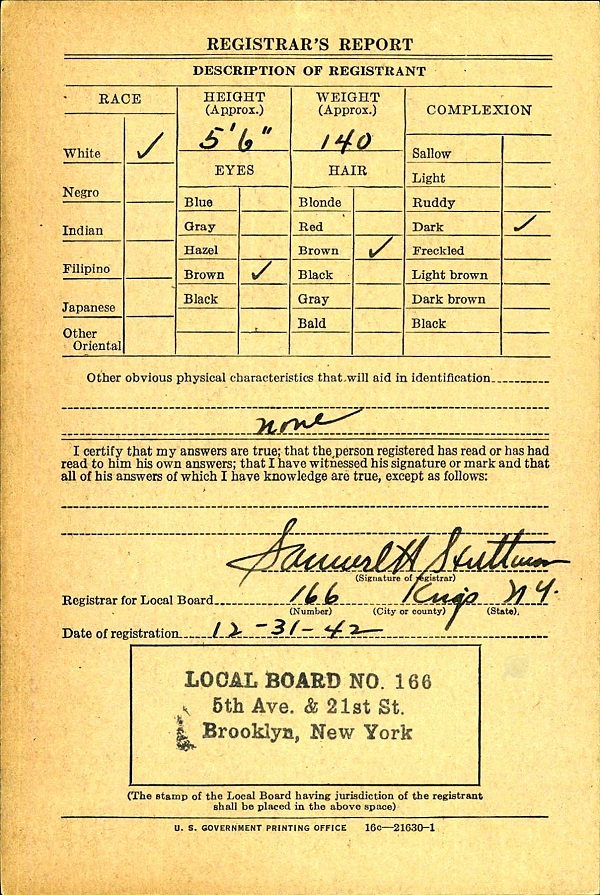 REGISTRAR'S REPORT
DESCRIPTION OF REGISTRANT
RACE
HEIGHT (Approx.)
WEIGHT (Approx.)
COMPLEXION
5'6"
140
EYES
HAIR
White ✓
Negro
Indian
Filipino
Japanese
Other Oriental
Blue
Gray
Hazel
Brown ✓
Black
Blonde
Red
Brown ✓
Black
Gray
Bald
Sallow
Light
Ruddy
Dark ✓
Freckled
Light brown
Dark brown
Black
Other obvious physical characteristics that will aid in identification
none
I certify that my answers are true; that the person registered has read or has had
read to him his own answers; that I have witnessed his signature or mark and that
all of his answers of which I have knowledge are true, except as follows:
Samuel H
(Signature of registrar)
Registrar for Local Board 166 Kings N.Y.
(Number) (City or county) (State)
Date of registration 12-31-42
LOCAL BOARD NO. 166
5th Ave. & 21st St.
Brooklyn, New York
(The stamp of the Local Board having jurisdiction of the registrant
shall be placed in the above space)
U. S. GOVERNMENT PRINTING OFFICE 16c—21630-1